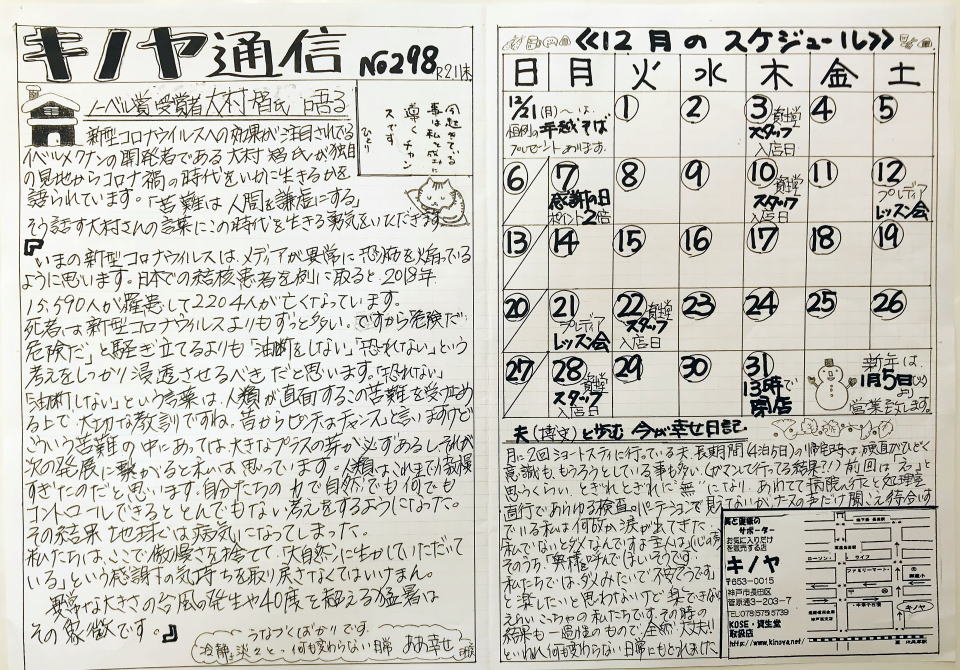 キノヤ通信 No298 R2.11末
ノーベル賞受賞者大村智氏 語る
今起きている
事は私を成功に
導くチャン
スです
ひとり
新型コロナウイルスへの効果が注目されてる
イベルメクチンの開発者である大村智氏が独自
の見地からコロナ禍の時代をいかに生きるかを
語られています。「苦難は人間を謙虚にする」
そう話す大村さんの言葉にこの時代を生きる勇気をいただきます
『いまの新型コロナウイルスは、メディアが異常に恐怖を煽っている
ように思います。日本での結核患者を例に取ると、2018年
15,590人が罹患して2204人が亡くなっています。
死者は新型コロナウィルスよりもずっと多い。ですから危険だ!
危険だ」と騒ぎ立てるよりも「油断をしない」「恐れない」という
考えをしっかり浸透させるべきだと思います。「恐れない」
「油断しない」という言葉は、人類が直面するこの苦難を受け止め
る上で大切な教訓ですね。昔からピンチはチャンスと言いますけど
こういう苦難の中にあっては大きなプラスの芽が必ずあるし、それが
次の発展に繋がると私は思っています。人類はこれまで傲慢
すぎたのだと思います。自分たちの力で自然でも何でも
コントロールできるととんでもない考えをするようになった。
その結果、地球は病気になってしまった。
私たちは、ここで傲慢さを捨てて「大自然に生かしていただいて
いる」という感謝の気持ちを取り戻さなくてはいけません。
異常な大きさの台風の発生や40度を超える猛暑は
その象徴です。』
うなづくばかりです。
冷静に淡々と、何も変わらない日常 ああ幸せ
≪12月のスケジュール≫
日 月 火 水 木 金 土
12/21(月)〜は、
恒例の年越そば
プレゼントあります。
1 2 3 資生堂スタッフ入店日 4 5
6 7 感謝の日ポイント2倍 8 9 10 資生堂スタッフ入店日 11 12 プレディアレッスン会
13 14 15 16 17 18 19
20 21 プレディアレッスン会 22 資生堂スタッフ入店日 23 24 25 26
27 28 資生堂スタッフ入店日 29 30 31 13時で閉店
新年は
1月5日(火)
より
営業致します。
夫(博文)と歩む 今が幸せ日記
月に2回ショートステイに行っている夫、長期間(4泊5日)の帰宅時は、硬直がひどく
意識も、もうろうとしている事も多い(ガマンして行ってる結果?!)前回は「えっ」と
思うくらい、とぎれとぎれに“無”になり、あわてて病院へ行くと処置室
直行であらゆる検査。パーテーションで見えないが、ナースの声だけ聞こえ待合す
でいる私は何故か涙が出てきた。
私でないとダメなんですよ主人は(心の声)
私たちでは、ダメみたいで不安そうです」
と楽したいと思わないけど楽できない
結果も一過性のもので全部大丈夫!!
といわれ何も変わらない日常にもどれました
美と健康の
サポーター
お気に入りだけ
を販売する店
キノヤ
〒653-0015
神戸市長田区
菅原通3-203-7
TEL078(575)5739
KOSE・資生堂
取扱店
http://www.kinoya.net/
ローソン
ライフ
ファミリーマート
キノヤ